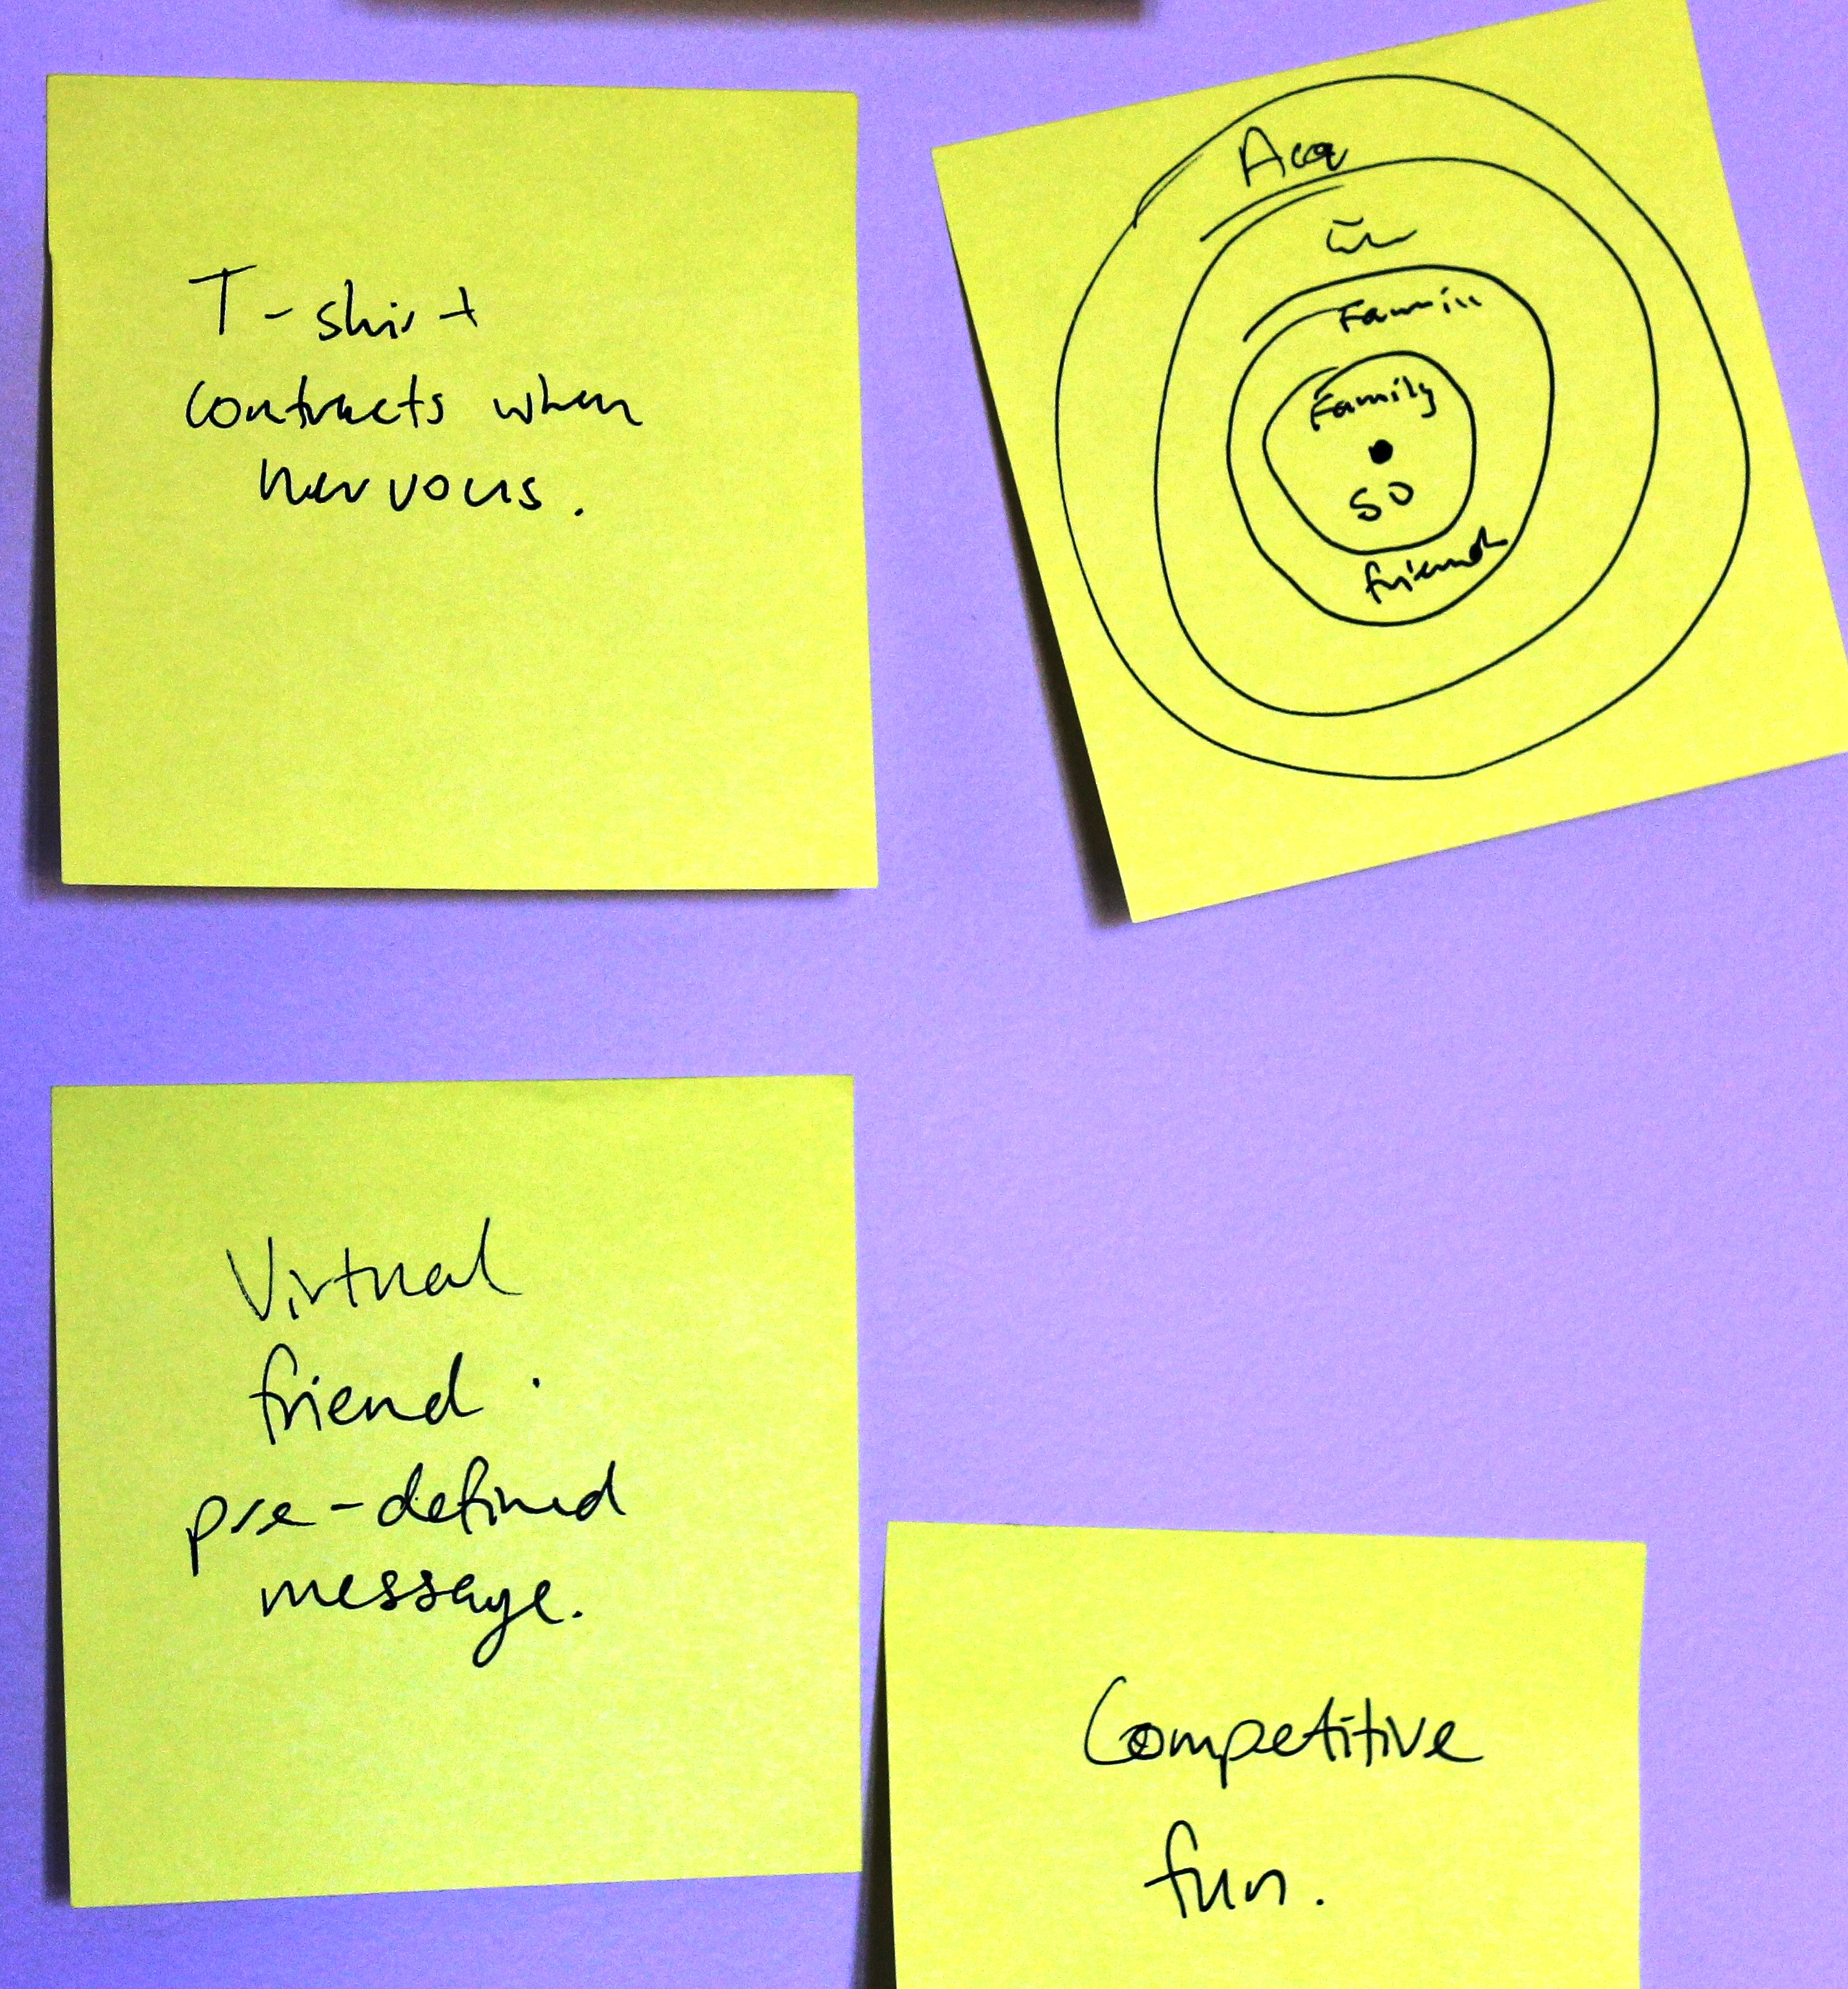 T-shirt
contracts when
nervous.
Acq
Family
SO
friends
Virtual
friend.
pre-defined
message.
Competitive
fun.